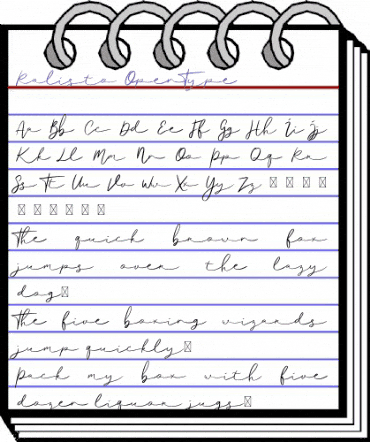 Ralista OpenType
Aa Bb Cc Dd Ee Ff Gg Hh Ii Jj
Kk Ll Mm Nn Oo Pp Qq Rr
Ss Tt Uu Vv Ww Xx Yy Zz
The quick brown fox
jumps over the lazy
dog
The five boxing wizards
jump quickly
Pack my box with five
dozen liquor jugs